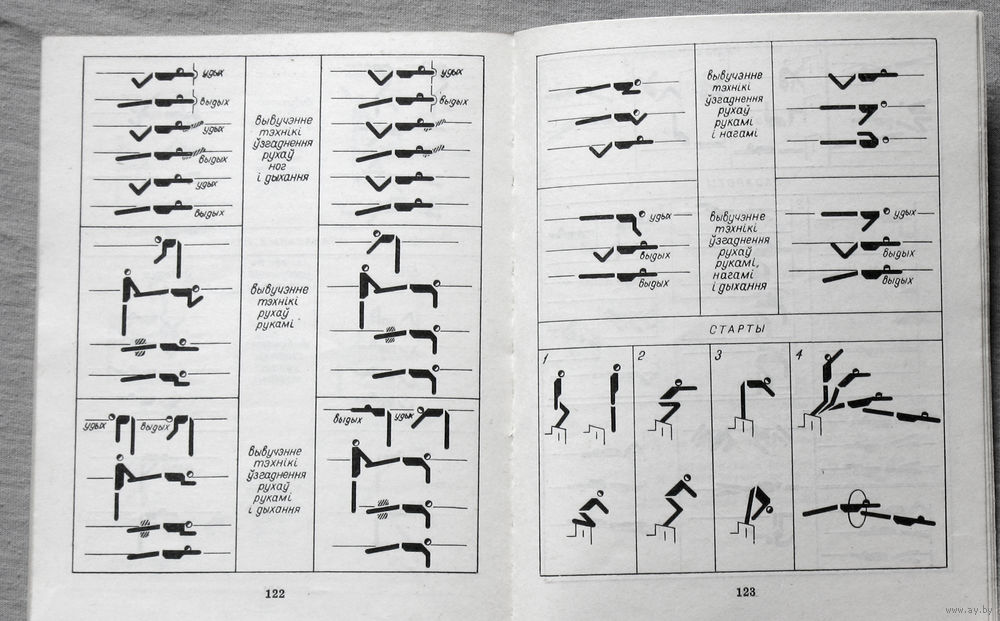 удых
удых
выдых
выдых
удых
выдых
удых
выдых
вывучэнне
тэхнікі
ўзгаднення
рухаў
ног
і дыхання
вывучэнне
тэхнікі
рухаў
рукамі
удых
выдых
выдых
удых
вывучэнне
тэхнікі
ўзгаднення
рухаў
рукамі
і дыхання
122
вывучэнне
тэхнікі
ўзгаднення
рухаў
рукамі
і нагамі
удых
выдых
выдых
вывучэнне
тэхнікі
ўзгаднення
рухаў
рукамі,
нагамі
і дыхання
удых
выдых
выдых
СТАРТЫ
1
2
3
4
123
www.ay.by